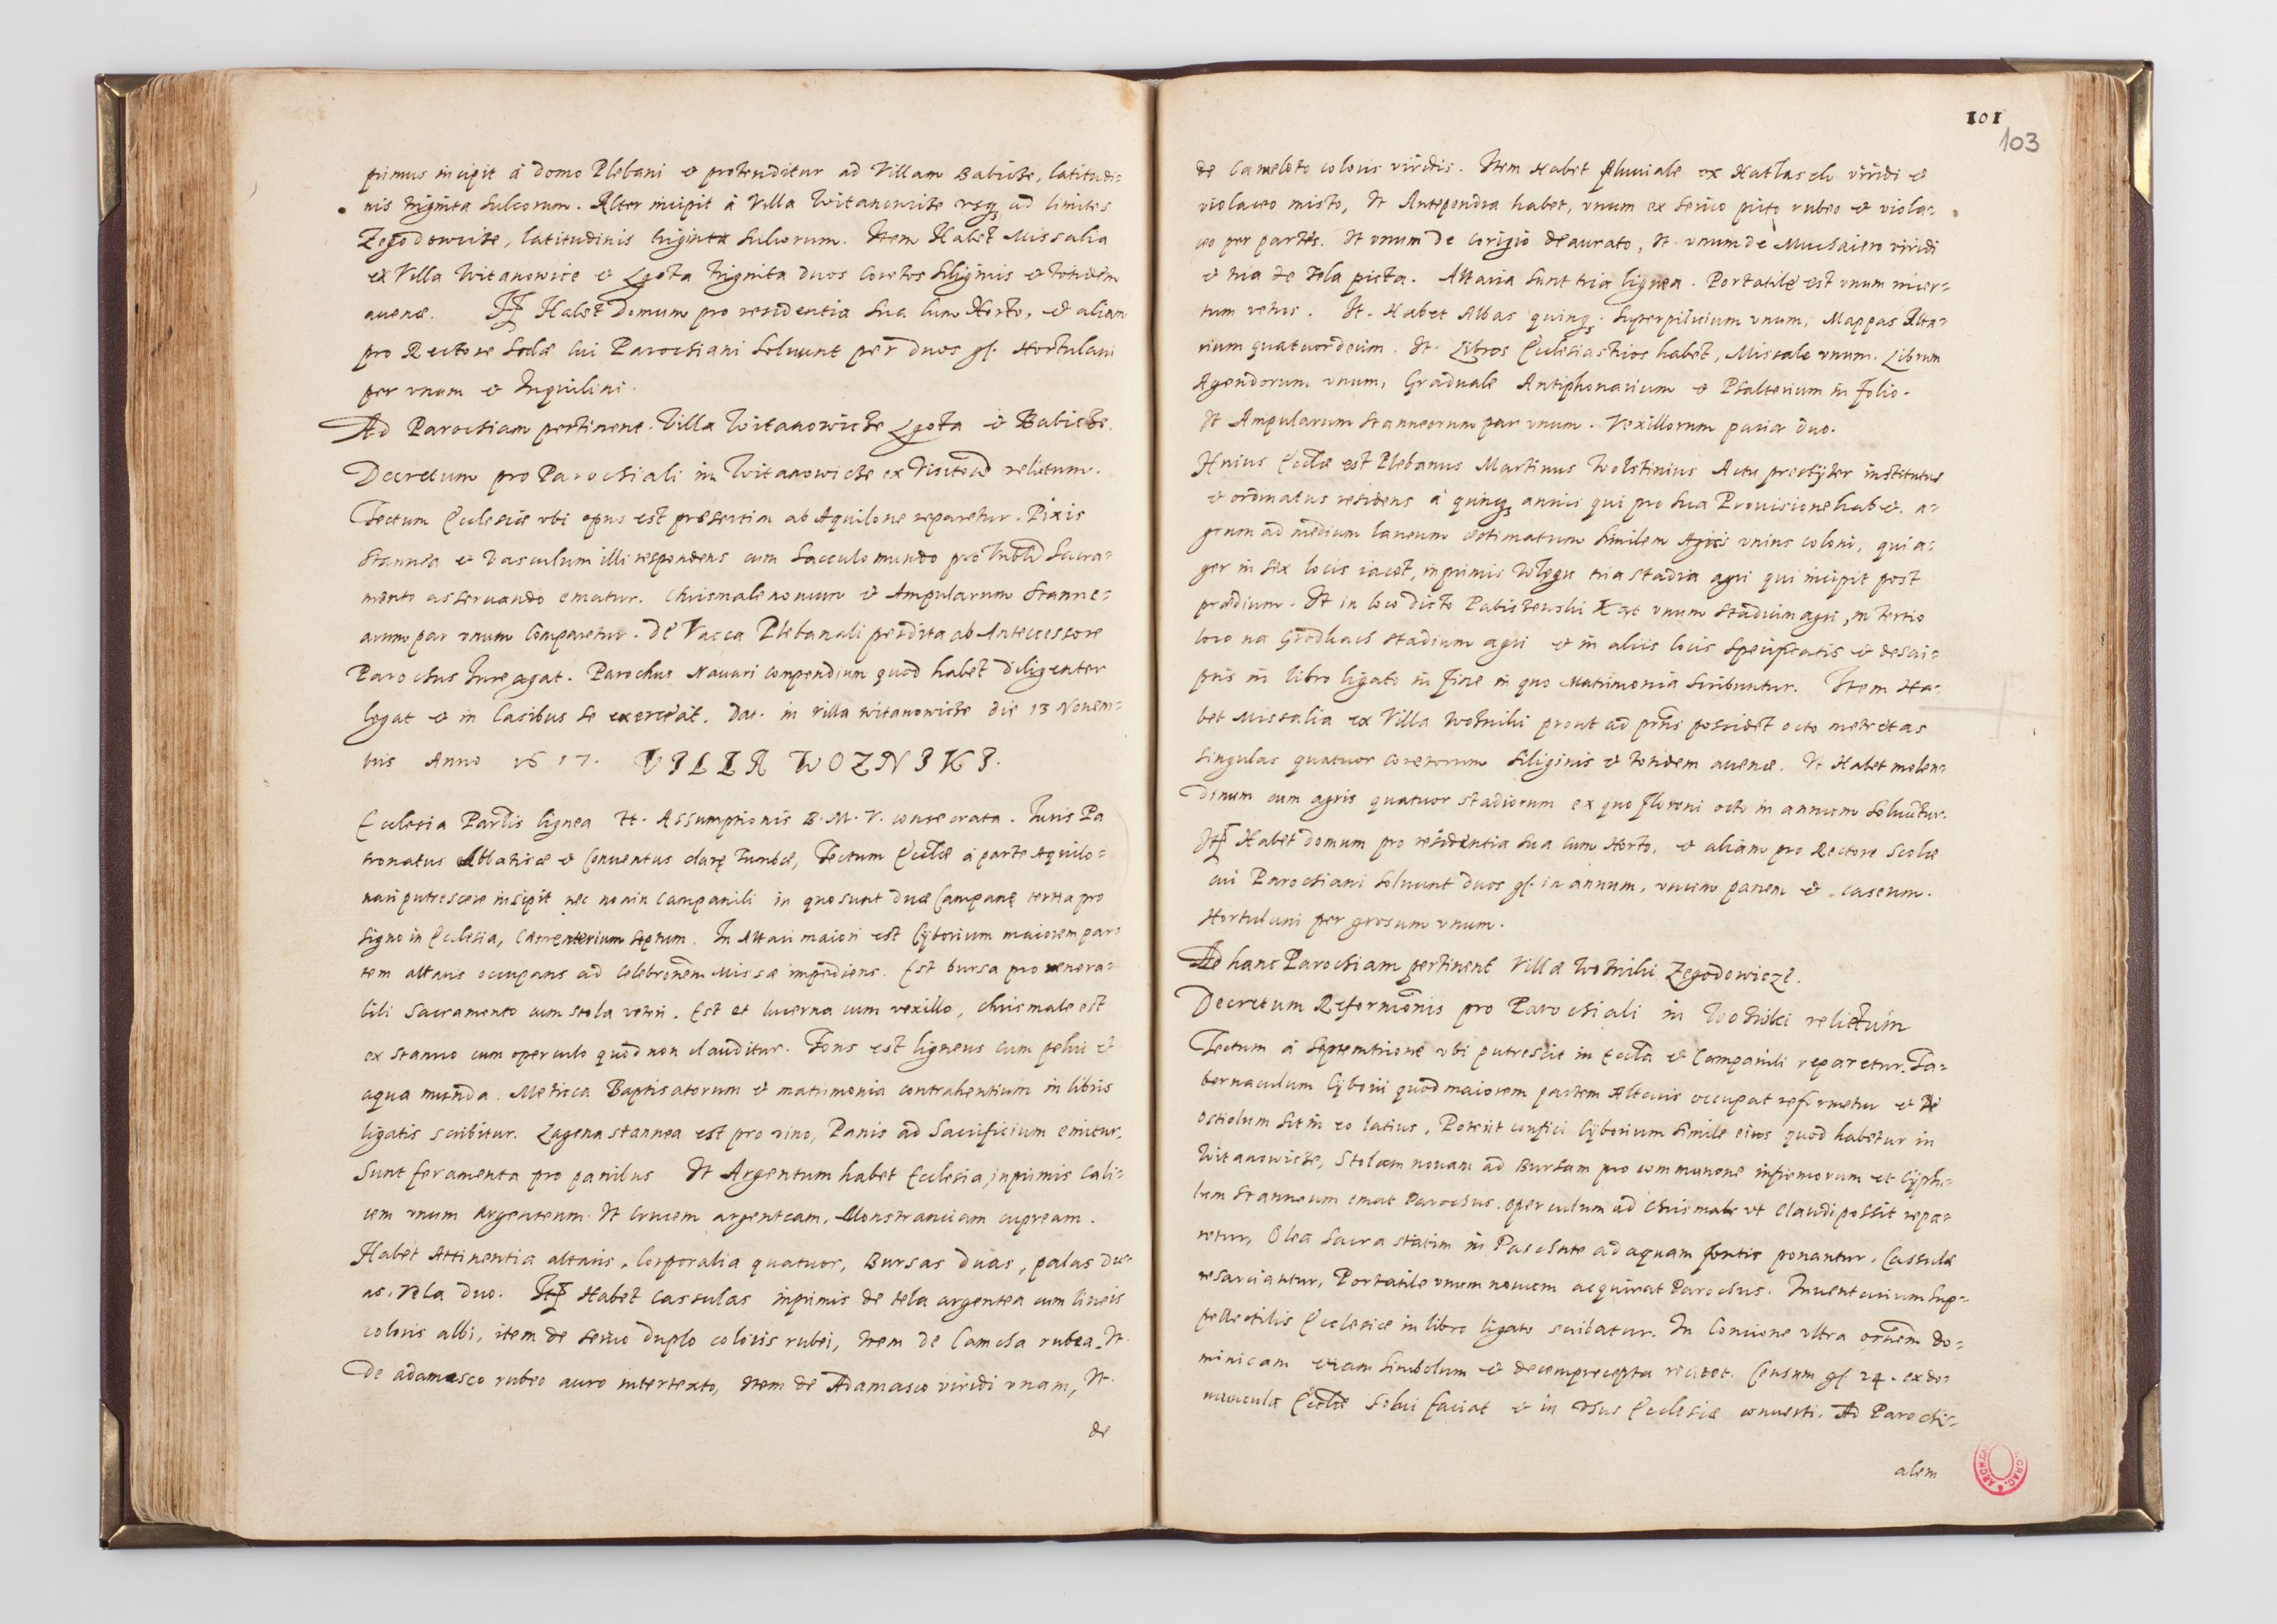 primus incipit à domo Plebani et protenditur ad Villam Babicze, latitudi=
nis triginta sulcorum. Alter incipit à Villa Witanowicze vsq3 ad limites
Zegodowicze, latitudinis triginta sulcorum. Item Habet Missalia
ex Villa Witanowice et Lgota triginta duos coretos siliginis et totidem
auenæ. It Habet Domum pro residentia sua cum Horto, et aliam
pro Rectore scolæ cui Parochiani soluunt per duos gl. Hortulani
per vnum et Inquilini.
Ad Parochiam pertinent. Villa Witanowicze Lgota et Babicze.
Decretum pro Parochiali in Witanowicze ex relictum.
Tectum Ecclesiæ vbi opus est præsertim ab Aquilone reparetur. Pixis
stannea et Vasculum illi respondens cum sacculo mundo pro Sacra=
mento asseruando ematur. Chrismale nouum et Ampularum stanne=
arum par vnum comparetur. De Vacca Plebanali perdita ab Antecessore
Parochus Iure agat. Parochus Nauari compendium quod habet diligenter
legat et in Casibus se exerceat. Dat. in villa witanowicze die 13 Nouem=
bris Anno 1617. VILLA WOZNIKI.
Ecclesia Parlis lignea tt. Assumptionis B. M. V. consecrata. Iuris Pa
tronatus Abbatissæ et Conuentus claræ Tumbæ, Tectum Eccliæ à parte Aquilo=
nari putrescere inscipit nec non in Campanili in quo sunt duæ Campanę tertia pro
signo in Ecclesia, Cæmenterium septum. In Altari maiori est Cyborium maiorem par=
tem altaris occupans ad celebronem Missæ impediens. Est bursa pro venera=
bili Sacramento cum stola veteri. Est et lucerna cum vexillo, chrismale est
ex stanno cum operculo quod non clauditur. Fons est ligneus cum pelui et
aqua munda. Metrica Baptisatorum et matrimonia contrahentium in libris
ligatis scribitur. Lagena stannea est pro vino, Panis ad Sacrificium emitur.
Sunt feramenta pro panibus It Argentum habet Ecclesia, inprimis Cali=
cem vnum Argenteum. It Crucem argenteam, Monstranciam cupream.
Habet Attinentia altaris, Corporalia quatuor, Bursas duas, palas du=
as, vela duo. It Habet Cassulas inprimis de tela argentea cum lineis
coloris albi, item de serico duplo coloris rubei, Item de Camcha rubea. It.
De adamasco rubeo auro intertexto, Item de Adamasco viridi vnam, It.
de
101
103
de Cameloto coloris viridis. Item Habet pluuiale ex Hatlasch viridi et
violaceo misto, It Antependia habet, vnum ex serico picto rubeo et viola=
ceo per partes. It vnum de corigio deaurato, It. vnum de Muchaiero viridi
et tria de Tela picta. Altaria sunt tria lignea. Portatile est vnum incer=
tum vetus. It. Habet Albas quinq3. Superpilicium vnum, Mappas Alta=
rium quatuordecim. It. Libros Ecclesiasticos habet, Missale vnum. Librum
Agendorum vnum, Graduale Antiphonarium et Psalterium in folio.
It Ampularum stanneorum par vnum. Vexillorum paria duo.
Huius Eccliæ est Plebanus Martinus Wolstinius Actu presbyter institutus
et ordinatus residens à quinq3 annis qui pro sua Prouisione habet. a=
grum ad medium laneum æstimatum similem Agris vnius coloni, qui a=
ger in sex locis iacet, inprimis tria stadia agri qui incipit post
prædium. It in loco dicto vnum stadium agri, in tertio
loco na Grodkach stadium agri et in aliis locis specificatis et descri=
ptis in libro ligato in fine in quo Matrimonia scribuntur. Item Ha=
bet Missalia ex Villa Wozniki prout ad prns possidet octo metretas
singulas quatuor coretorum siliginis et totidem auenæ. It Habet molen=
dinum cum agris quatuor stadiorum ex quo floreni octo in annum soluuntur.
It Habet domum pro residentia sua cum Horto, et aliam pro Rectore Scolæ
cui Parochiani soluunt duos gl. in annum, vnum panem et caseum.
Hortulani per grosum vnum.
Ad hanc Parochiam pertinent Villæ Wozniki Zegodowicze.
Decretum Reformonis pro Parochiali in Wozniki relictum
Tectum à Septemtrione vbi putrescit in Eccla et Campanili reparetur. Ta=
bernaculum Cyborii quod maiorem partem Altaris occupat reformetur et
ostiolum sit in eo latius. Poterit confici Cyborium simile eius quod habetur in
Witanowicze, Stolam nouam ad Bursam pro communione infirmorum et Cyphu=
lum stanneum emat Parochus. operculum ad Chrismale vt claudi possit repa=
retur, Olea sacra statim in Paschate ad aquam fontis ponantur. Cassulæ
resarciantur, Portatile vnum nouum acquirat Parochus. Inuentarium sup=
pellectilis Ecclesiæ in libro ligato scribatur. In Concione vltra ornem do=
minicam etiam simbolum et decem precepta recitet. Censum gl. 24. ex do=
muncula Eccliæ solui faciat et in vsus Ecclesiæ conuerti. Ad Parochi=
alem